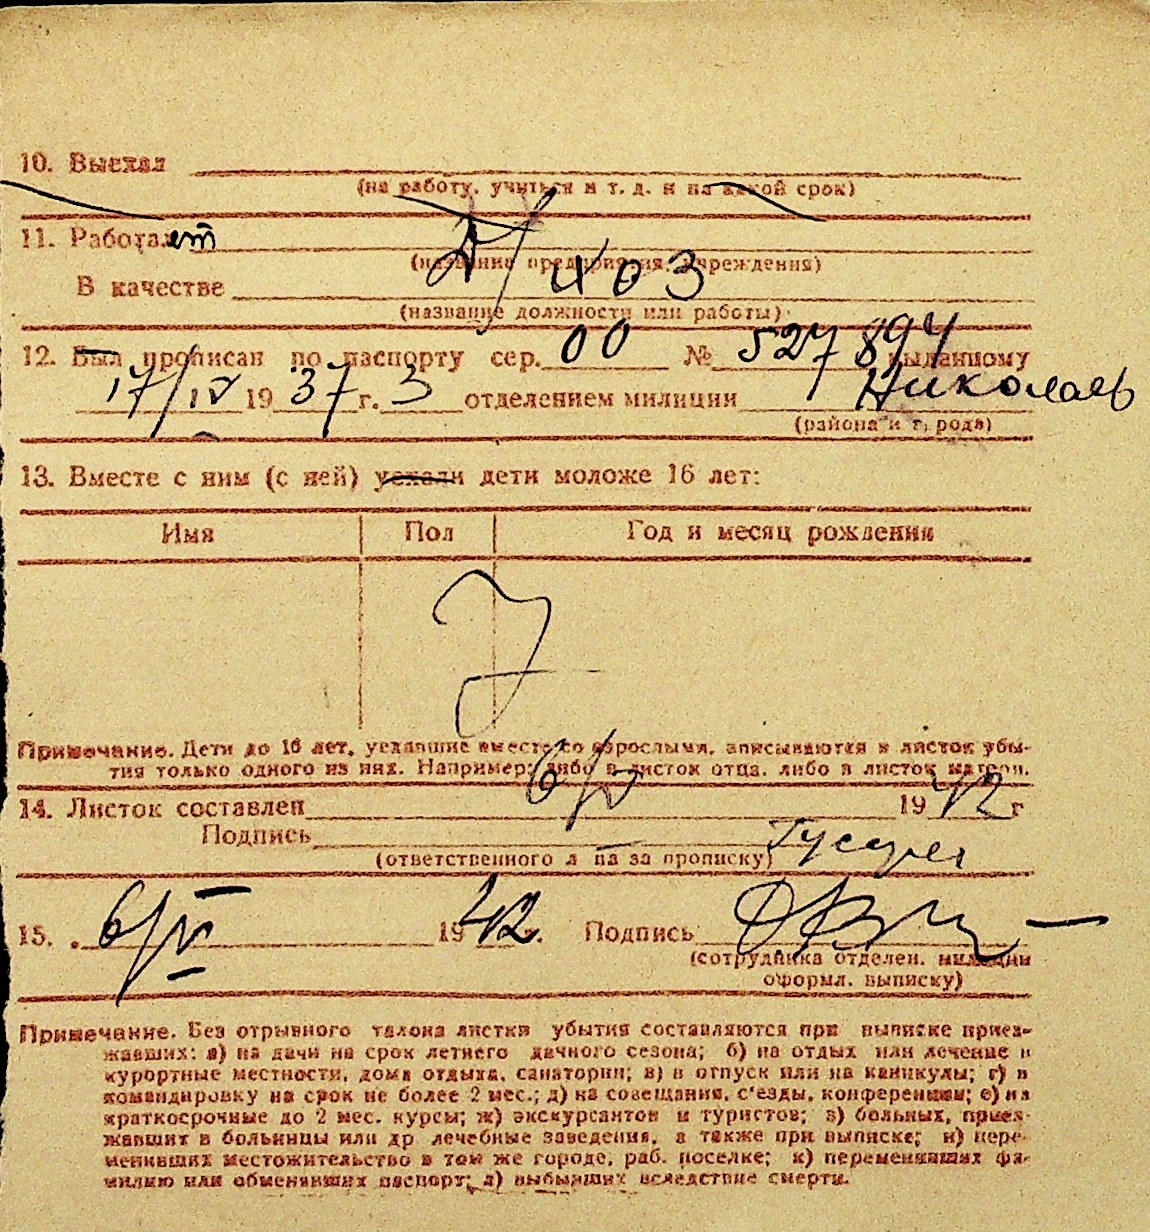 10. Выехал
(на работу, учиться и т. д. и на какой срок)
11. Работает
(название предприятия, учреждения)
Д/хоз
В качестве
(название должности или работы)
12. Был прописан по паспорту сер. 00 № 527894 выданному
17/IV 1937 г. 3 отделением милиции Николаев
(района и города)
13. Вместе с ним (с ней) уехали дети моложе 16 лет:
Имя Пол Год и месяц рождения
Примечание. Дети до 16 лет, уехавшие вместе со взрослыми, вписываются в листок убы-
тия только одного из них. Например: либо в листок отца, либо в листок матери.
14. Листок составлен 6/V 1942 г
Подпись
(ответственного л па за прописку)
15. 6/V 1942 г. Подпись
(сотрудника отделен. милиции
оформл. выписку)
Примечание. Без отрывного талона листки убытия составляются при выписке приез-
жавших: а) на дачи на срок летнего дачного сезона; б) на отдых или лечение в
курортные местности, дома отдыха, санатории; в) в отпуск или на каникулы; г) в
командировку на срок не более 2 мес.; д) на совещания, с'езды, конференции; е) на
краткосрочные до 2 мес. курсы; ж) экскурсантов и туристов; з) больных, приез-
жавших в больницы или др лечебные заведения, а также при выписке; и) пере-
менивших местожительство в том же городе, раб. поселке; к) переменивших фа-
милию или обменявших паспорт; л) выбывших вследствие смерти.